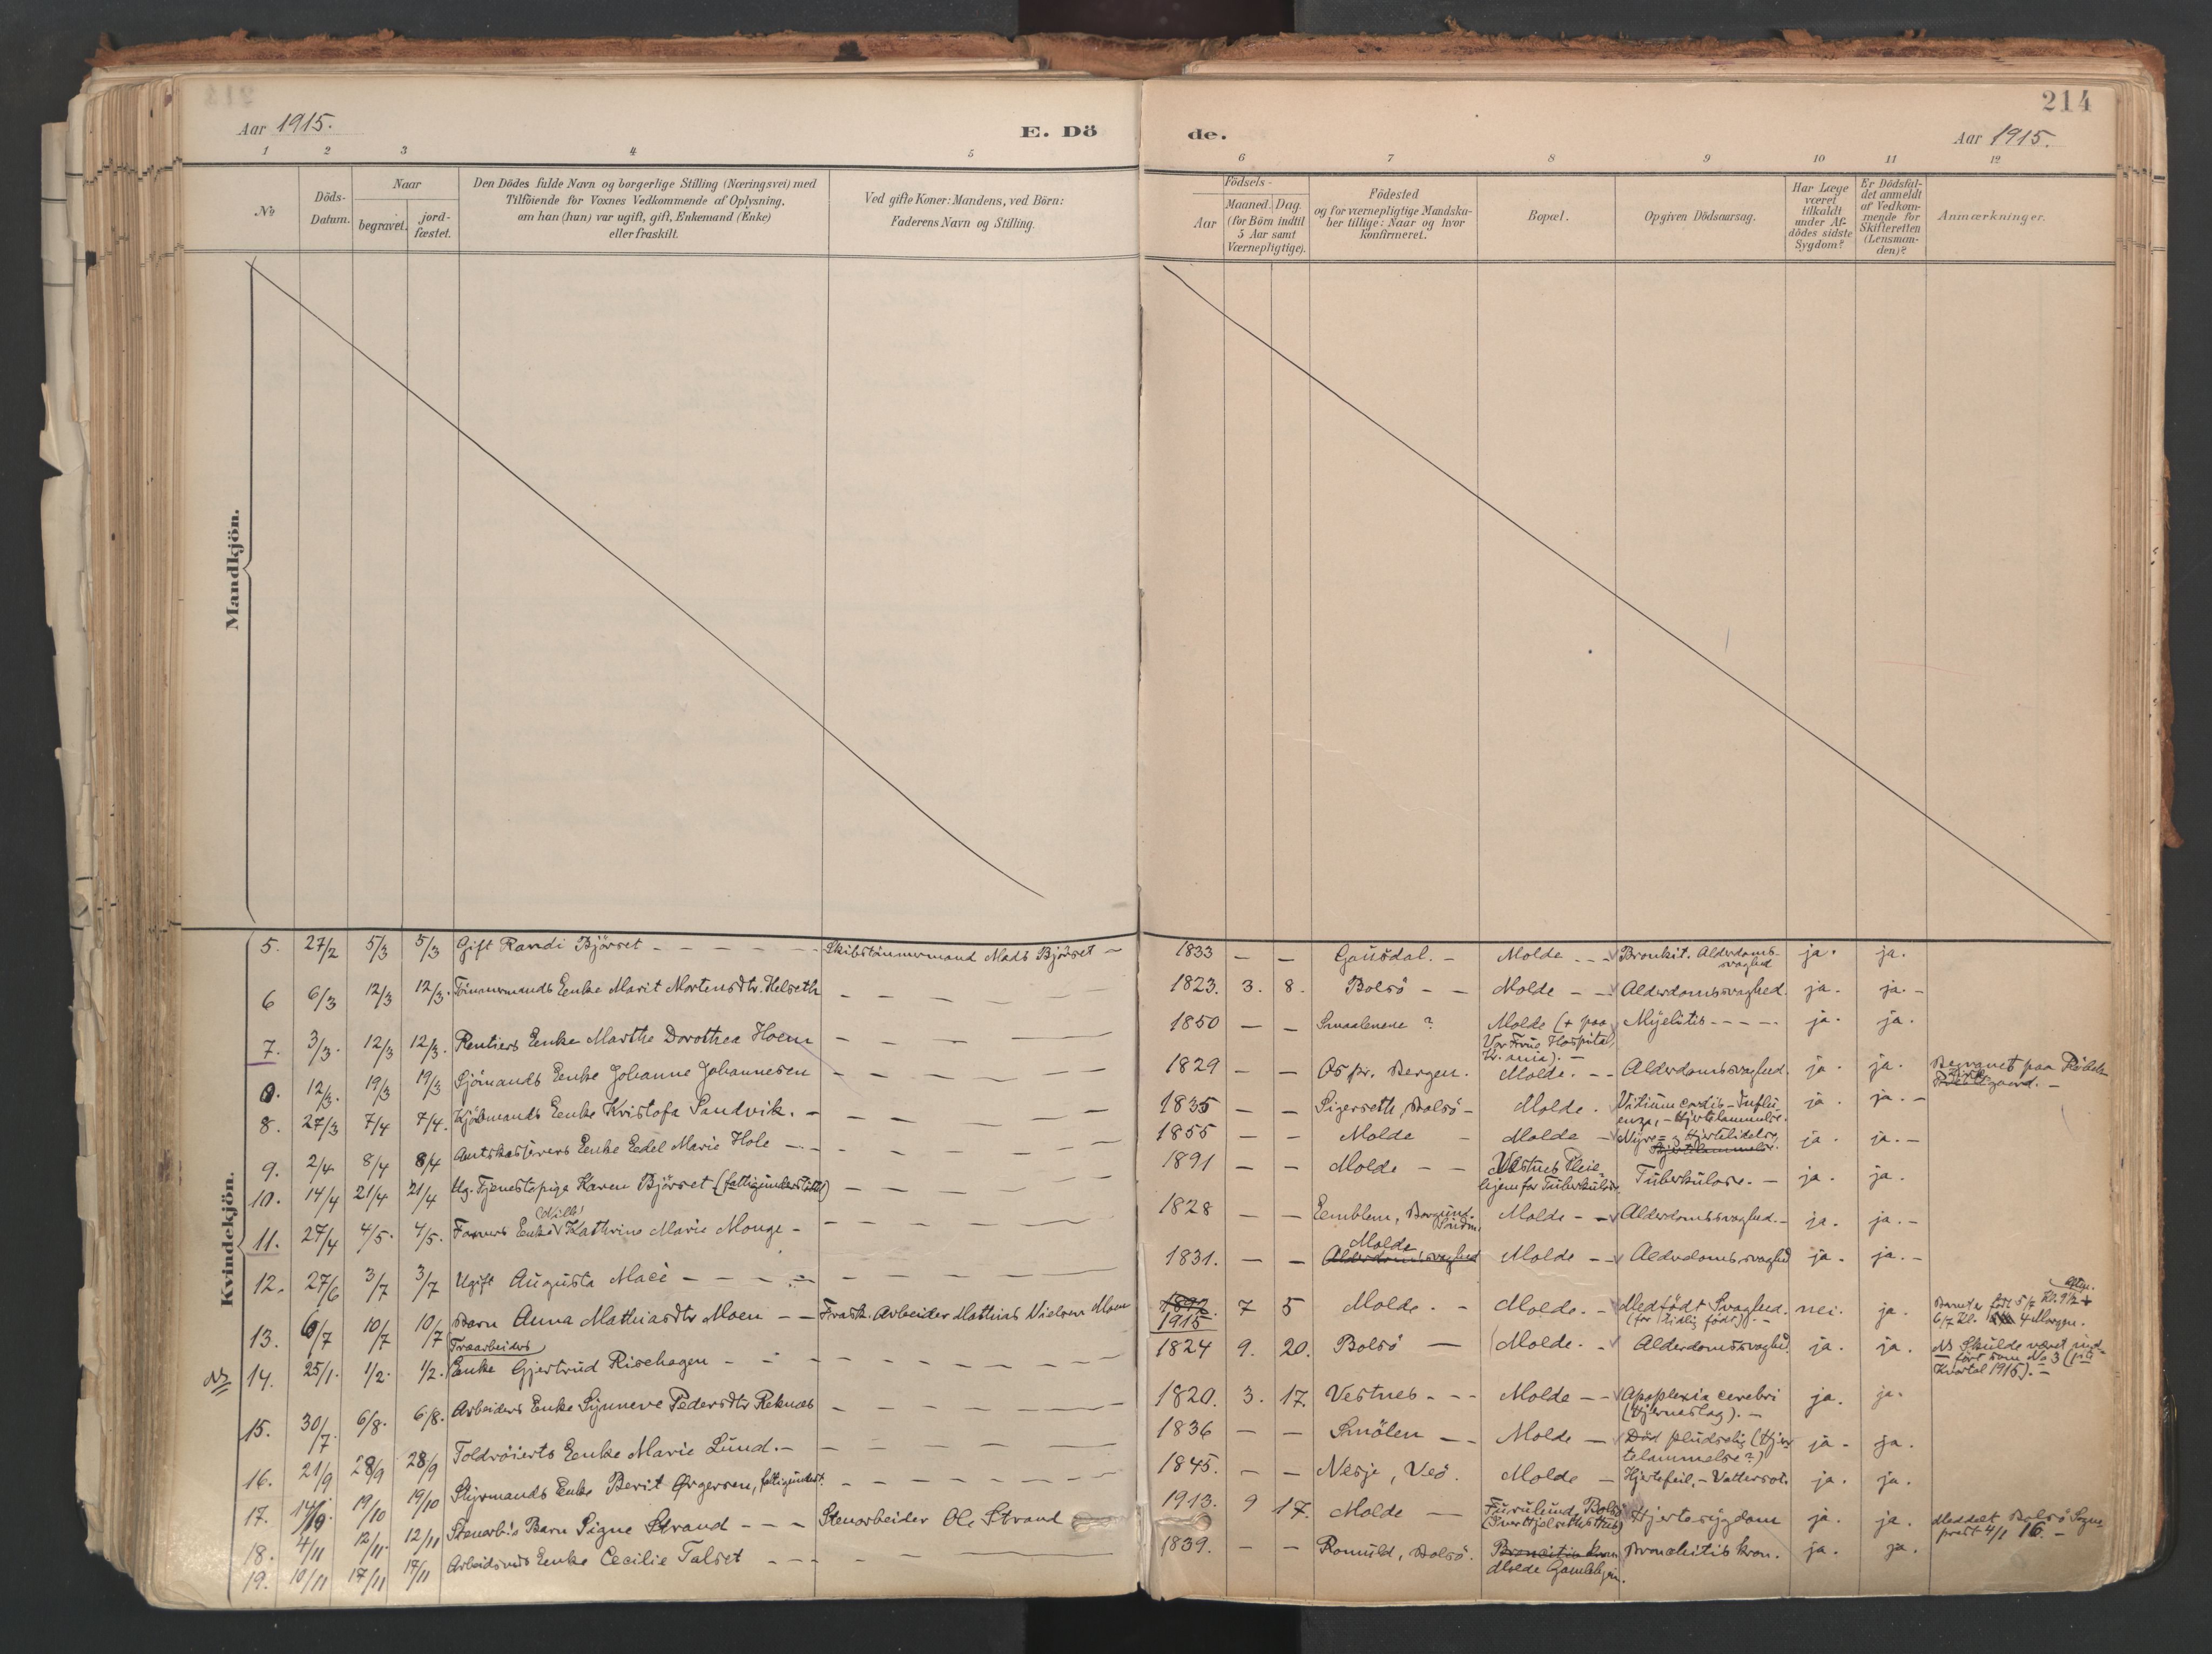 214
Aar 1915.
E. Dö
de.
Aar 1915.
1 2 3 4 5 6 7 8 9 10 11 12
No
Döds-Datum.
Naar
begravet.
jordfæstet.
Den Dödes fulde Navn og borgerlige Stilling (Næringsvei) med
Tilföiende for Voxnes Vedkommende af Oplysning,
om han (hun) var ugift, gift, Enkemand (Enke)
eller fraskilt.
Ved gifte Koner: Mandens, ved Börn:
Faderens Navn og Stilling.
Födsels-
Aar
Maaned. Dag.
(for Börn indtil
5 Aar samt
Værnepligtige).
Födested
og for værnepligtige Mandska-
ber tillige: Naar og hvor
konfirmeret.
Bopæl.
Opgiven Dödsaarsag.
Har Læge
været
tilkaldt
under Af-
dödes sidste
Sygdom?
Er Dödsfal-
det anmeldt
af Vedkom-
mende for
Skifteretten
(Lensman-
den)?
Anmærkninger.
Mandkjön.
Kvindekjön.
5. 27/2 5/3 5/3 Gift Randi Bjørset - - - - Skibstømmermand Mads Bjørset - 1833 - - Gausdal. - Molde - - Bronkit. Alderdoms-
svaghed ja. ja.
6 6/3 12/3 12/3. Tömmermands Enke Marit Mortensdtr. Helseth - - - - 1823. 3. 8. Bolsö - - Molde - - Alderdomssvaghed. ja. ja. -
7. 3/3. 12/3 12/3. Rentiers Enke Marthe Dorothea Hoem - - - - 1850 - - Smaalenene ? Molde (+ paa
Vor Frue Hospital,
Kr.ania). - Myelitis - - - - ja. ja.
12/3. 19/3 19/3 Sjömands Enke Johanne Johannesen - - - - 1829 - - Os pr. Bergen. Molde. - - Alderdomssvaghed. ja. ja. Begravet paa Röbek
Kirkegaard. -
8. 27/3 7/4 7/4. Kjöbmands Enke Kristofa Sandvik. - - - - 1835 - - Sigerseth, Bolsö - Molde. Vitium cordis - Influ-
enza, - Hjertelammelse. ja. ja. -
9. 2/4 8/4 8/4 Amtskasserers Enke Edel Marie Hole - - - - 1855 - - Molde - Molde - Nyre= og Hjertelidelse.
Hjertelammelse. ja. ja. -
10. 14/4 21/4 21/4 Ug. Tjenestepige Karen Bjørset (fattigunderstöttet) - - - - 1891 - - Molde - - Vestnes Pleie-
hjem for Tuberkulose. Tuberkulose. - ja. ja.
11. 27/4 4/5. 4/5. Enke Kathrine Marie Monge - - - - 1828 - - Emblem, Borgund
Söndm. Molde - - Alderdomssvaghed. - ja. ja. -
12. 27/6 3/7 3/7 Ugift Augusta Mace - - - - 1831. - - Molde
Alderdomssvaghed Molde - - Alderdomssvaghed ja. ja. -
13. 6/7 10/7 10/7 Barn Anna Mathiasdtr Moen - - Frask. Arbeider Mathias Nielsen Moen 1892.
1915 7 5 Molde. - Molde. - Medfödt Svaghed.
(for tidlig födt). - nei. ja. Barnet er födt 5/7 Kl. 9½ eftm. +
6/7 Kl. 4 Morgen.
NB 14. 25/1. 1/2. 1/2. Træarbeiders
Enke Gjertrud Risehagen - - - - 1824 9. 20. Bolsö - Molde. - Alderdomssvaghed. ja. ja. NB Skulde været ind-
fört som No 3 (1ste
Kvartal 1915). -
15. 30/7. 6/8. 6/8. Arbeiders Enke Synneve Pedersdtr Reknes - - - - 1820. 3. 17. Vestnes - - - Molde - - Apoplexia cerebri
(Hjerneslag). - ja. ja.
16. 21/9 28/9 28/9 Toldrorierts Enke Marie Lund. - - - - 1836 - - Smölen - - Molde - Död pludselig (Hjer-
telammelse?) ja. ja.
17. 14/10. 19/10 19/10 Styrmands Enke Berit Ørgersen, fattigunderst. - - - 1845. - - Nesje, Veö. Molde - Hjertefeil, - Vattersot. ja. ja.
18. 4/11 12/11. 12/11 Stenarb.s Barn Signe Strand - - - Stenarbeider Ole Strand 1913. 9 17. Molde - Furulund, Bolsö Hjertesygdom ja. ja. Meddelt Bolsö Sogne-
prest 4/1 16. -
19. 10/11 17/11 17/11 Arbeiders Enke Cecilie Talset - - - - 1839. - - Romuld, Bolsö. Broncitis kron
Molde Gamlehjem. Bronchitis kron. ja. ja.